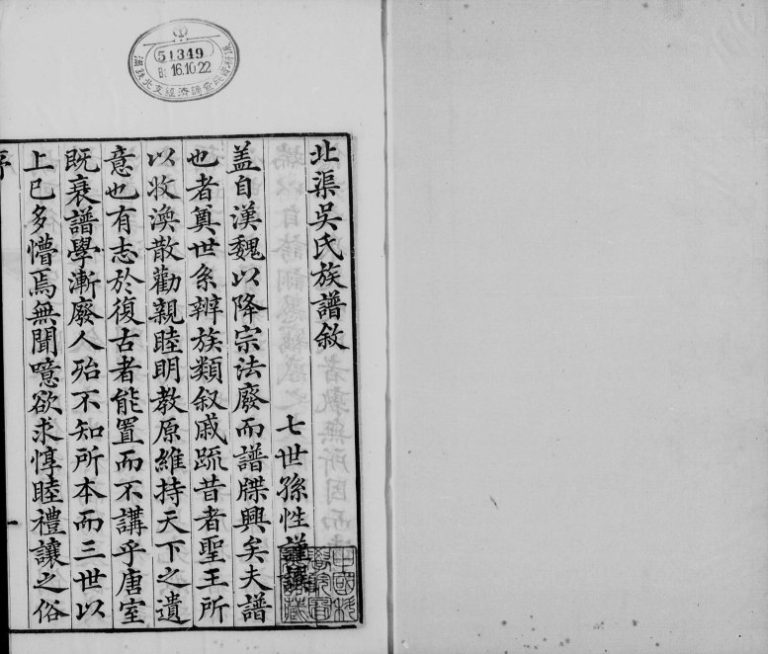 北渠吳氏族譜敘
七世孫性謹譔
蓋自漢魏以降宗法廢而譜牒興矣夫譜
也者奠世系辨族類叙戚疏昔者聖王所
以收渙散勸親睦明教原維持天下之遺
意也有志於復古者能置而不講乎唐室
既衰譜學漸廢人殆不知所本而三世以
上已多懵焉無聞噫欲求惇睦禮讓之俗
序
51349
16.10.22